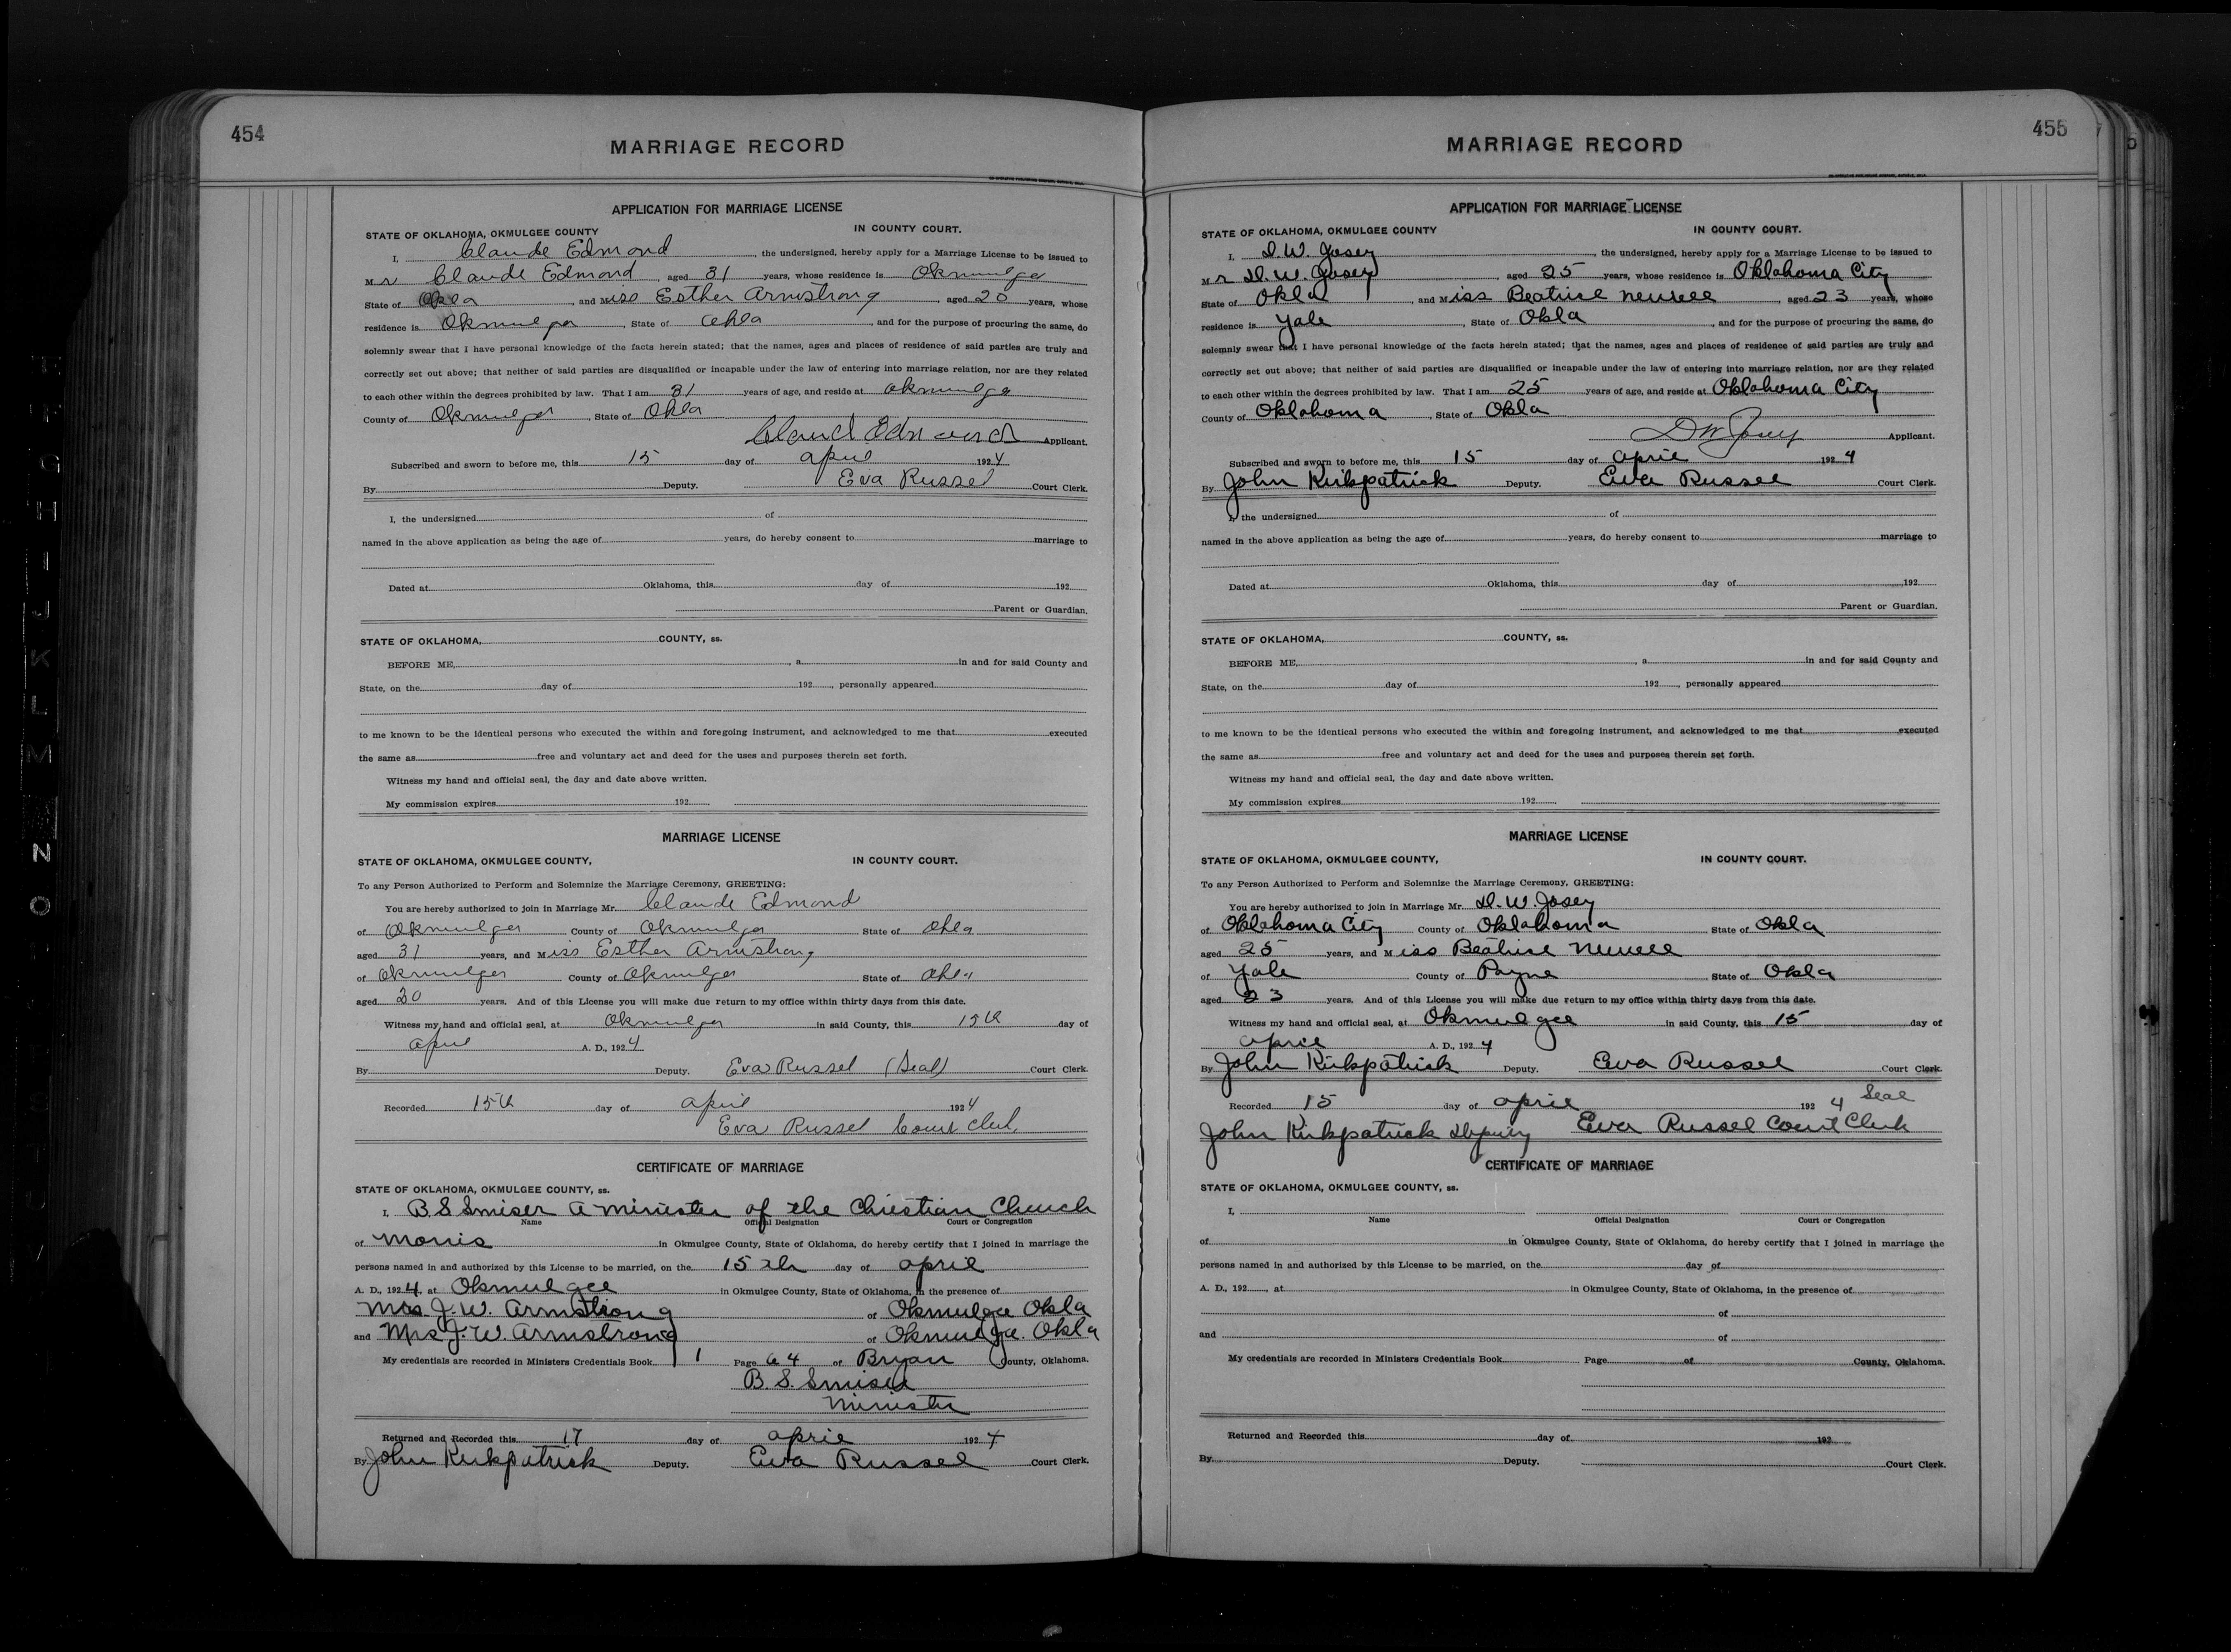 454
MARRIAGE RECORD
APPLICATION FOR MARRIAGE LICENSE
STATE OF OKLAHOMA, OKMULGEE COUNTY IN COUNTY COURT.
I, Claude Edmond, the undersigned, hereby apply for a Marriage License to be issued to
Mr Claude Edmond, aged 31 years, whose residence is Okmulgee
State of Okla, and Miss Esther Armstrong, aged 20 years, whose
residence is Okmulgee, State of Okla, and for the purpose of procuring the same, do
solemnly swear that I have personal knowledge of the facts herein stated; that the names, ages and places of residence of said parties are truly and
correctly set out above; that neither of said parties are disqualified or incapable under the law of entering into marriage relation, nor are they related
to each other within the degrees prohibited by law. That I am 31 years of age, and reside at Okmulgee
County of Okmulgee, State of Okla
Claud Edmond Applicant.
Subscribed and sworn to before me, this 15 day of April 1924
By Deputy. Eva Russel Court Clerk.
I, the undersigned of
named in the above application as being the age of years, do hereby consent to marriage to
Dated at Oklahoma, this day of 192
Parent or Guardian.
STATE OF OKLAHOMA, COUNTY, ss.
BEFORE ME, , a in and for said County and
State, on the day of 192 , personally appeared
to me known to be the identical persons who executed the within and foregoing instrument, and acknowledged to me that executed
the same as free and voluntary act and deed for the uses and purposes therein set forth.
Witness my hand and official seal, the day and date above written.
My commission expires 192
MARRIAGE LICENSE
STATE OF OKLAHOMA, OKMULGEE COUNTY, IN COUNTY COURT.
To any Person Authorized to Perform and Solemnize the Marriage Ceremony, GREETING:
You are hereby authorized to join in Marriage Mr. Claude Edmond
of Okmulgee County of Okmulgee State of Okla
aged 31 years, and Miss Esther Armstrong
of Okmulgee County of Okmulgee State of Okla
aged 20 years. And of this License you will make due return to my office within thirty days from this date.
Witness my hand and official seal, at Okmulgee in said County, this 15th day of
April A. D., 1924
By Deputy. Eva Russel (Seal) Court Clerk.
Recorded 15th day of April 1924
Eva Russel Court Clerk
CERTIFICATE OF MARRIAGE
STATE OF OKLAHOMA, OKMULGEE COUNTY, ss.
I, B. S Smiser a minister of the Christian Church
Name Official Designation Court or Congregation
of Morris in Okmulgee County, State of Oklahoma, do hereby certify that I joined in marriage the
persons named in and authorized by this License to be married, on the 15th day of April
A. D., 1924, at Okmulgee in Okmulgee County, State of Oklahoma, in the presence of
J. W. Armstrong of Okmulgee Okla
and Mrs J. W. Armstrong of Okmulgee. Okla
My credentials are recorded in Ministers Credentials Book 1 Page 64 of Bryan County, Oklahoma.
B. S. Smiser
Minister
Returned and Recorded this 17 day of April 1924
By John Kirkpatrick Deputy. Eva Russel Court Clerk.
455
MARRIAGE RECORD
APPLICATION FOR MARRIAGE LICENSE
STATE OF OKLAHOMA, OKMULGEE COUNTY IN COUNTY COURT.
I, D. W. Josey, the undersigned, hereby apply for a Marriage License to be issued to
Mr D. W. Josey, aged 25 years, whose residence is Oklahoma City
State of Okla, and Miss Beatrice Newell, aged 23 years, whose
residence is Yale, State of Okla, and for the purpose of procuring the same, do
solemnly swear that I have personal knowledge of the facts herein stated; that the names, ages and places of residence of said parties are truly and
correctly set out above; that neither of said parties are disqualified or incapable under the law of entering into marriage relation, nor are they related
to each other within the degrees prohibited by law. That I am 25 years of age, and reside at Oklahoma City
County of Oklahoma, State of Okla
D W Josey Applicant.
Subscribed and sworn to before me, this 15 day of April 1924
By John Kirkpatrick Deputy. Eva Russel Court Clerk.
I, the undersigned of
named in the above application as being the age of years, do hereby consent to marriage to
Dated at Oklahoma, this day of 192
Parent or Guardian.
STATE OF OKLAHOMA, COUNTY, ss.
BEFORE ME, , a in and for said County and
State, on the day of 192 , personally appeared
to me known to be the identical persons who executed the within and foregoing instrument, and acknowledged to me that executed
the same as free and voluntary act and deed for the uses and purposes therein set forth.
Witness my hand and official seal, the day and date above written.
My commission expires 192
MARRIAGE LICENSE
STATE OF OKLAHOMA, OKMULGEE COUNTY, IN COUNTY COURT.
To any Person Authorized to Perform and Solemnize the Marriage Ceremony, GREETING:
You are hereby authorized to join in Marriage Mr. D. W. Josey
of Oklahoma City County of Oklahoma State of Okla
aged 25 years, and Miss Beatrice Newell
of Yale County of Payne State of Okla
aged 23 years. And of this License you will make due return to my office within thirty days from this date.
Witness my hand and official seal, at Okmulgee in said County, this 15 day of
April A. D., 1924
By John Kirkpatrick Deputy. Eva Russel Court Clerk.
Recorded 15 day of April 1924 Seal
John Kirkpatrick Deputy Eva Russel Court Clerk
CERTIFICATE OF MARRIAGE
STATE OF OKLAHOMA, OKMULGEE COUNTY, ss.
I,
Name Official Designation Court or Congregation
of in Okmulgee County, State of Oklahoma, do hereby certify that I joined in marriage the
persons named in and authorized by this License to be married, on the day of
A. D., 192 , at in Okmulgee County, State of Oklahoma, in the presence of
of
and of
My credentials are recorded in Ministers Credentials Book Page of County, Oklahoma.
Returned and Recorded this day of 192
By Deputy. Court Clerk.